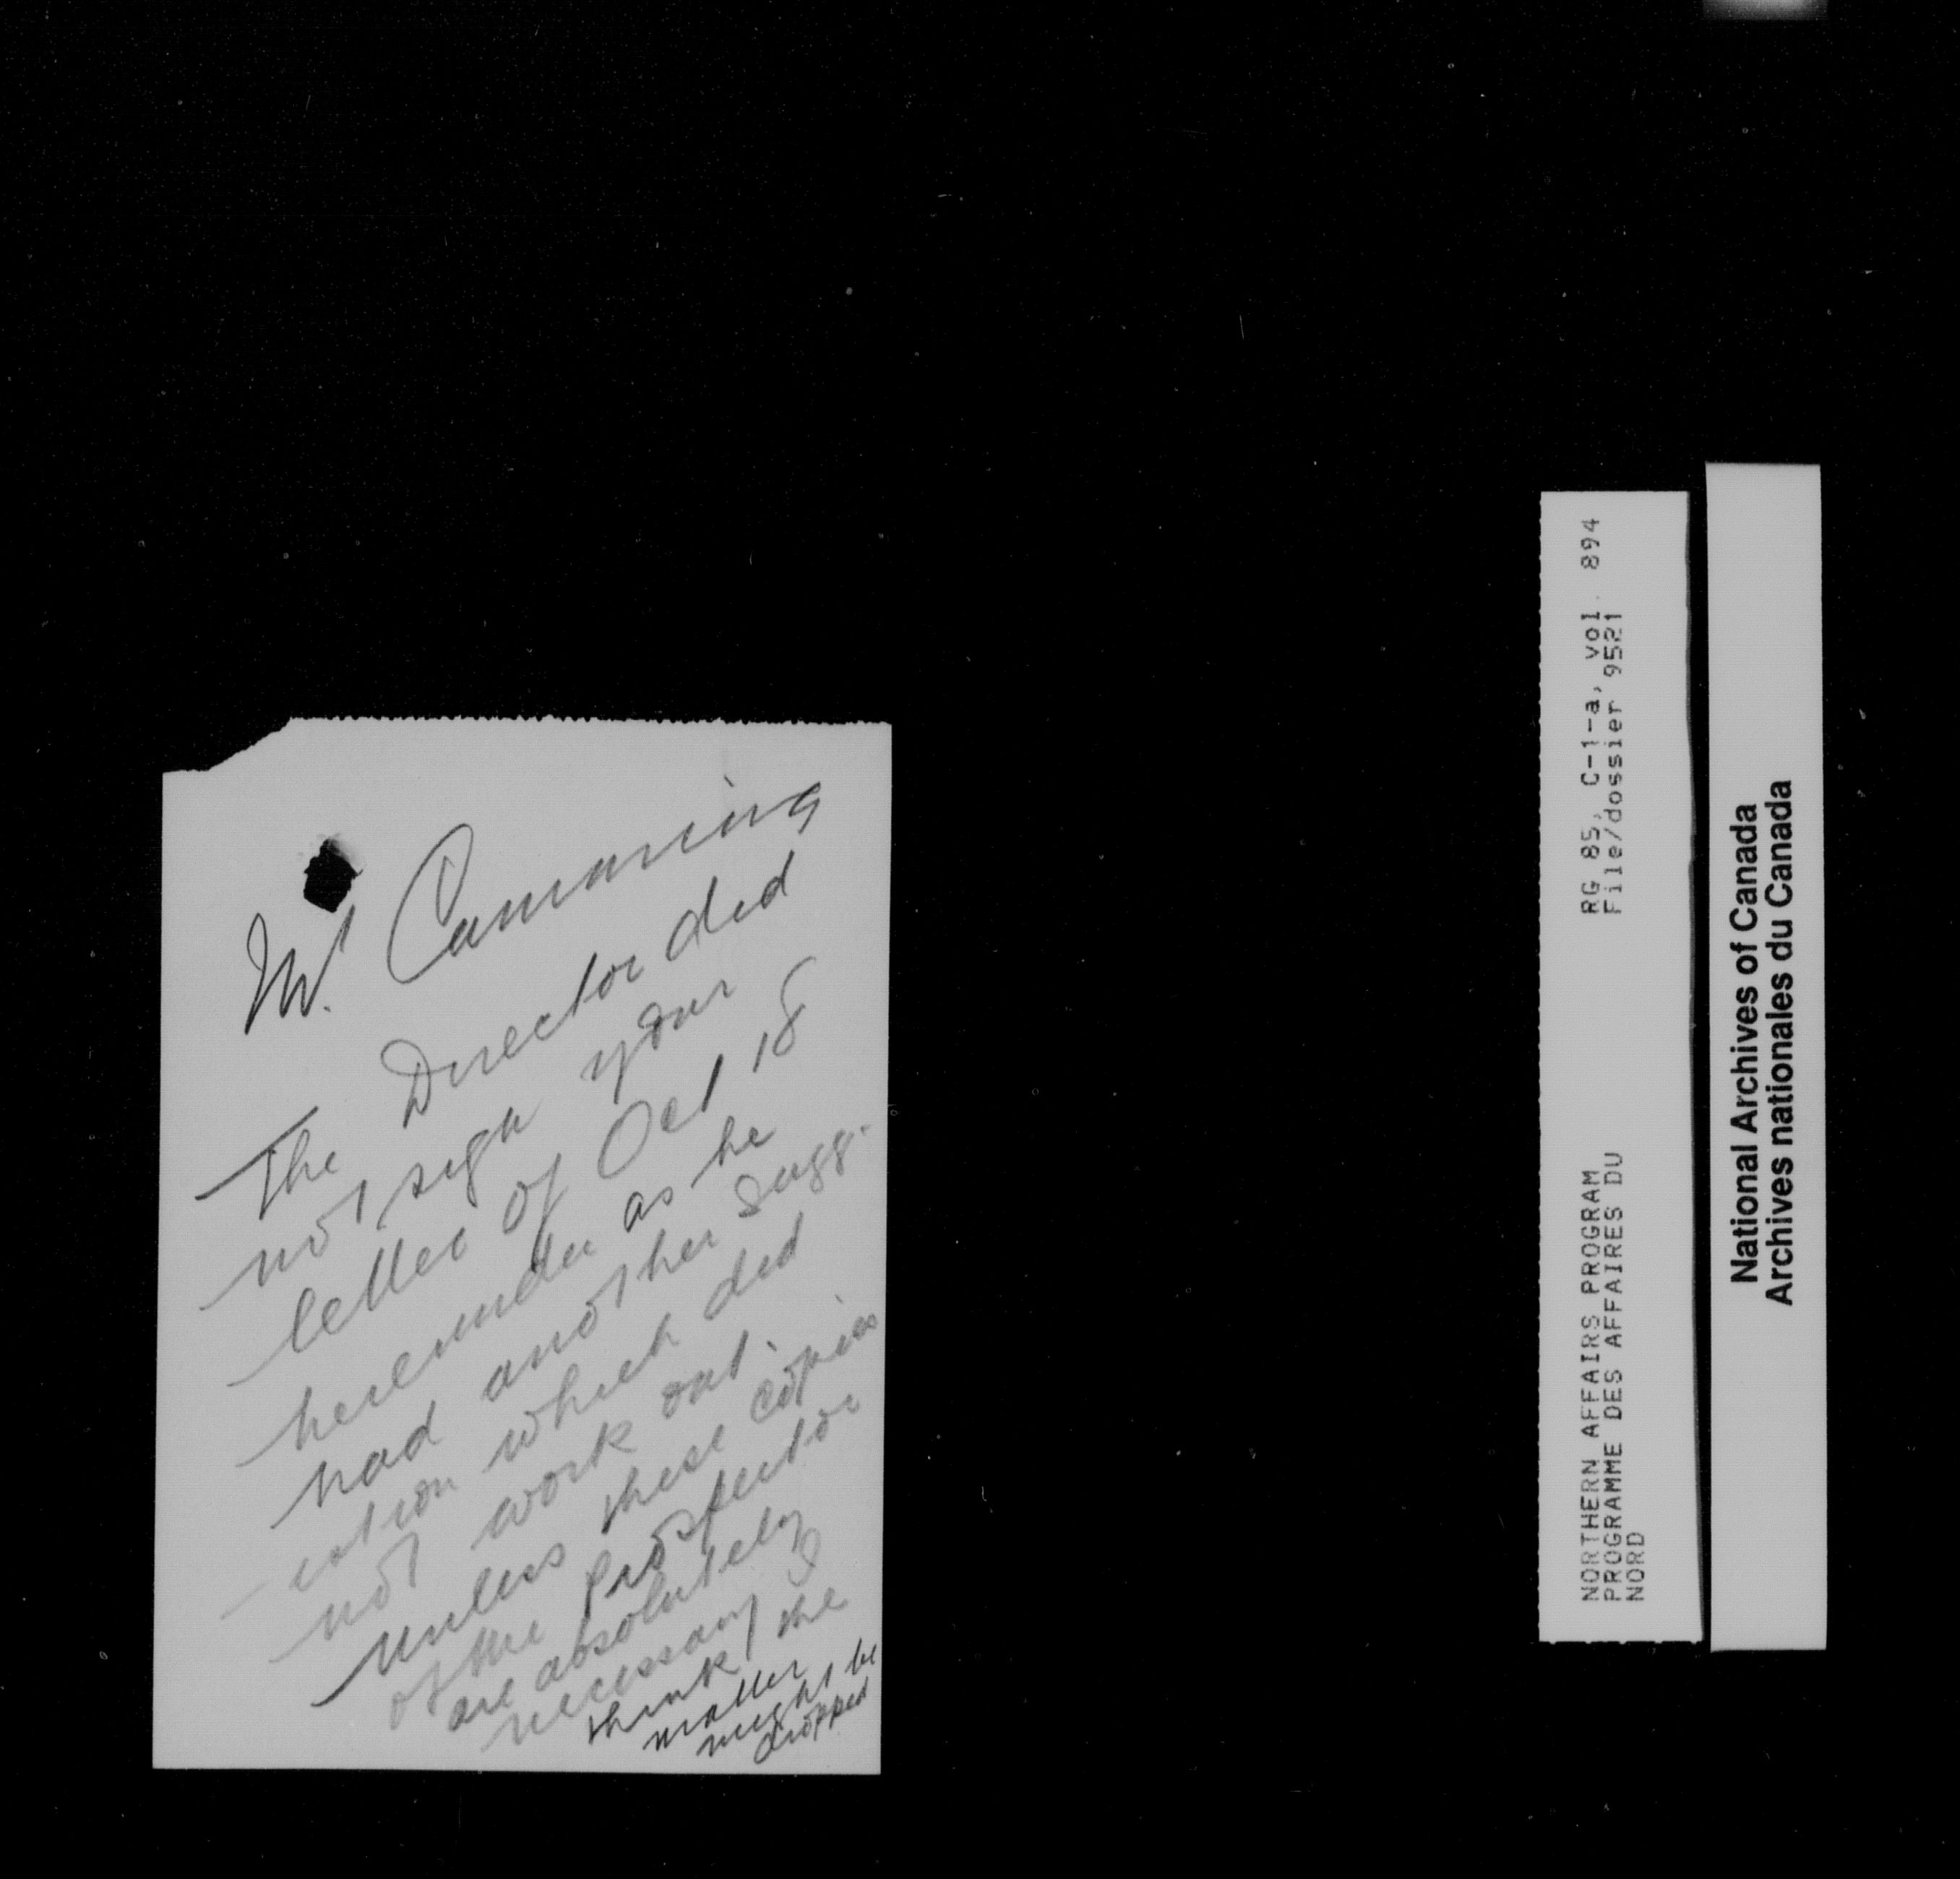 Mr. Cumming
The Director did
not sign your
letter of Oct 18
hereunder as he
had another sugg-
estion which did
not work out.
Unless these copies
of the prospector
are absolutely
necessary I
think the
matter
might be
dropped
RG 85, C-1-a, vol. 894
File/dossier 9521
NORTHERN AFFAIRS PROGRAM
PROGRAMME DES AFFAIRES DU
NORD
National Archives of Canada
Archives nationales du Canada